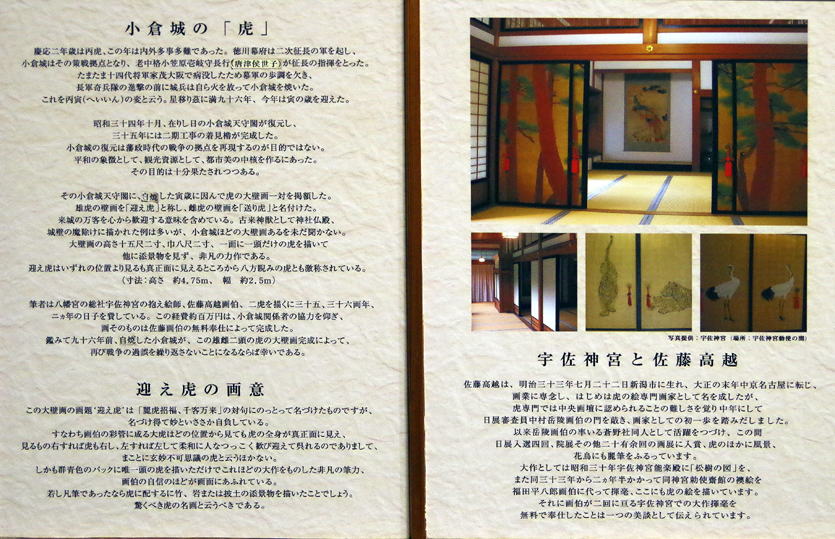 小倉城の「虎」
慶応二年歳は丙虎、この年は内外多事多難であった。徳川幕府は二次征長の軍を起し、
小倉城はその策戦拠点となり、老中格小笠原壱岐守長行(唐津侯世子)が征長の指揮をとった。
たまたま十四代将軍家茂大阪で病没したため幕軍の歩調を欠き、
長軍奇兵隊の進撃の前に城兵は自ら火を放って小倉城を焼いた。
これを丙寅(へいいん)の変と云う。星移り茲に満九十六年、今年は寅の歳を迎えた。
昭和三十四年十月、在りし日の小倉城天守閣が復元し、
三十五年には二期工事の着見櫓が完成した。
小倉城の復元は藩政時代の戦争の拠点を再現するのが目的ではない。
平和の象徴として、観光資源として、都市美の中核を作るにあった。
その目的は十分果たされつつある。
その小倉城天守閣に、自焼した寅歳に因んで虎の大壁画一対を掲額した。
雄虎の壁画を「迎え虎」と称し、雌虎の壁画を「送り虎」と名付けた。
来城の万客を心から歓迎する意味を含めている。古来神獣として神社仏殿、
城壁の魔除けに描かれた例は多いが、小倉城ほどの大壁画あるを未だ聞かない。
大壁画の高さ十五尺二寸、巾八尺二寸、一面に一頭だけの虎を描いて
他に添景物を見ず、非凡の力作である。
迎え虎はいずれの位置より見るも真正面に見えるところから八方睨みの虎とも激称されている。
(寸法:高さ 約4.75m、 幅 約2.5m)
筆者は八幡宮の総社宇佐神宮の抱え絵師、佐藤高越画伯、二虎を描くに三十五、三十六両年、
二ヵ年の日子を費している。この経費約百万円は、小倉城関係者の協力を仰ぎ、
画そのものは佐藤画伯の無料奉仕によって完成した。
鑑みて九十六年前、自焼した小倉城が、この雄雌二頭の虎の大壁画完成によって、
再び戦争の過誤を繰り返さないことになるならば幸いである。
迎え虎の画意
この大壁画の画題‘迎え虎’は「麗虎招福、千客万来」の対句にのっとって名づけたものですが、
名づけ得て妙といささか自負している。
すなわち画伯の彩管に成る大虎はどの位置から見ても虎の全身が真正面に見え、
見るもの右すれば虎も右し、左すれば左して柔和に人なつっこく歓び迎えて呉れるのでありまして、
まことに玄妙不可思議の虎と云うほかない。
しかも群青色のバックに唯一頭の虎を描いただけでこれほどの大作をものした非凡の筆力、
画伯の自信のほどが画面にあふれている。
若し凡筆であったなら虎に配するに竹、岩または披土の添景物を描いたことでしょう。
驚くべき虎の名画と云うべきである。
写真提供:宇佐神宮 (場所:宇佐神宮勅使の間)
宇佐神宮と佐藤高越
佐藤高越は、明治三十三年七月二十二日新潟市に生れ、大正の末年中京名古屋に転じ、
画業に専念し、はじめは虎の絵専門画家として名を成したが、
虎専門では中央画壇に認められることの難しさを覚り中年にして
日展審査員中村岳陵画伯の門を敲き、画家としての初一歩を踏みだしました。
以来岳陵画伯の率いる蒼野社同人として活躍をつづけ、この間
日展入選四回、院展その他二十有余回の画展に入賞、虎のほかに風景、
花鳥にも麗筆をふるっています。
大作としては昭和三十年宇佐神宮能楽殿に「松樹の図」を、
また同三十三年から二ヵ年半かかって同神宮勅使斎館の襖絵を
福田平八郎画伯に代って揮毫、ここにも虎の絵を描いています。
それに画伯が二回に亘る宇佐神宮での大作揮毫を
無料で奉仕したことは一つの美談として伝えられています。